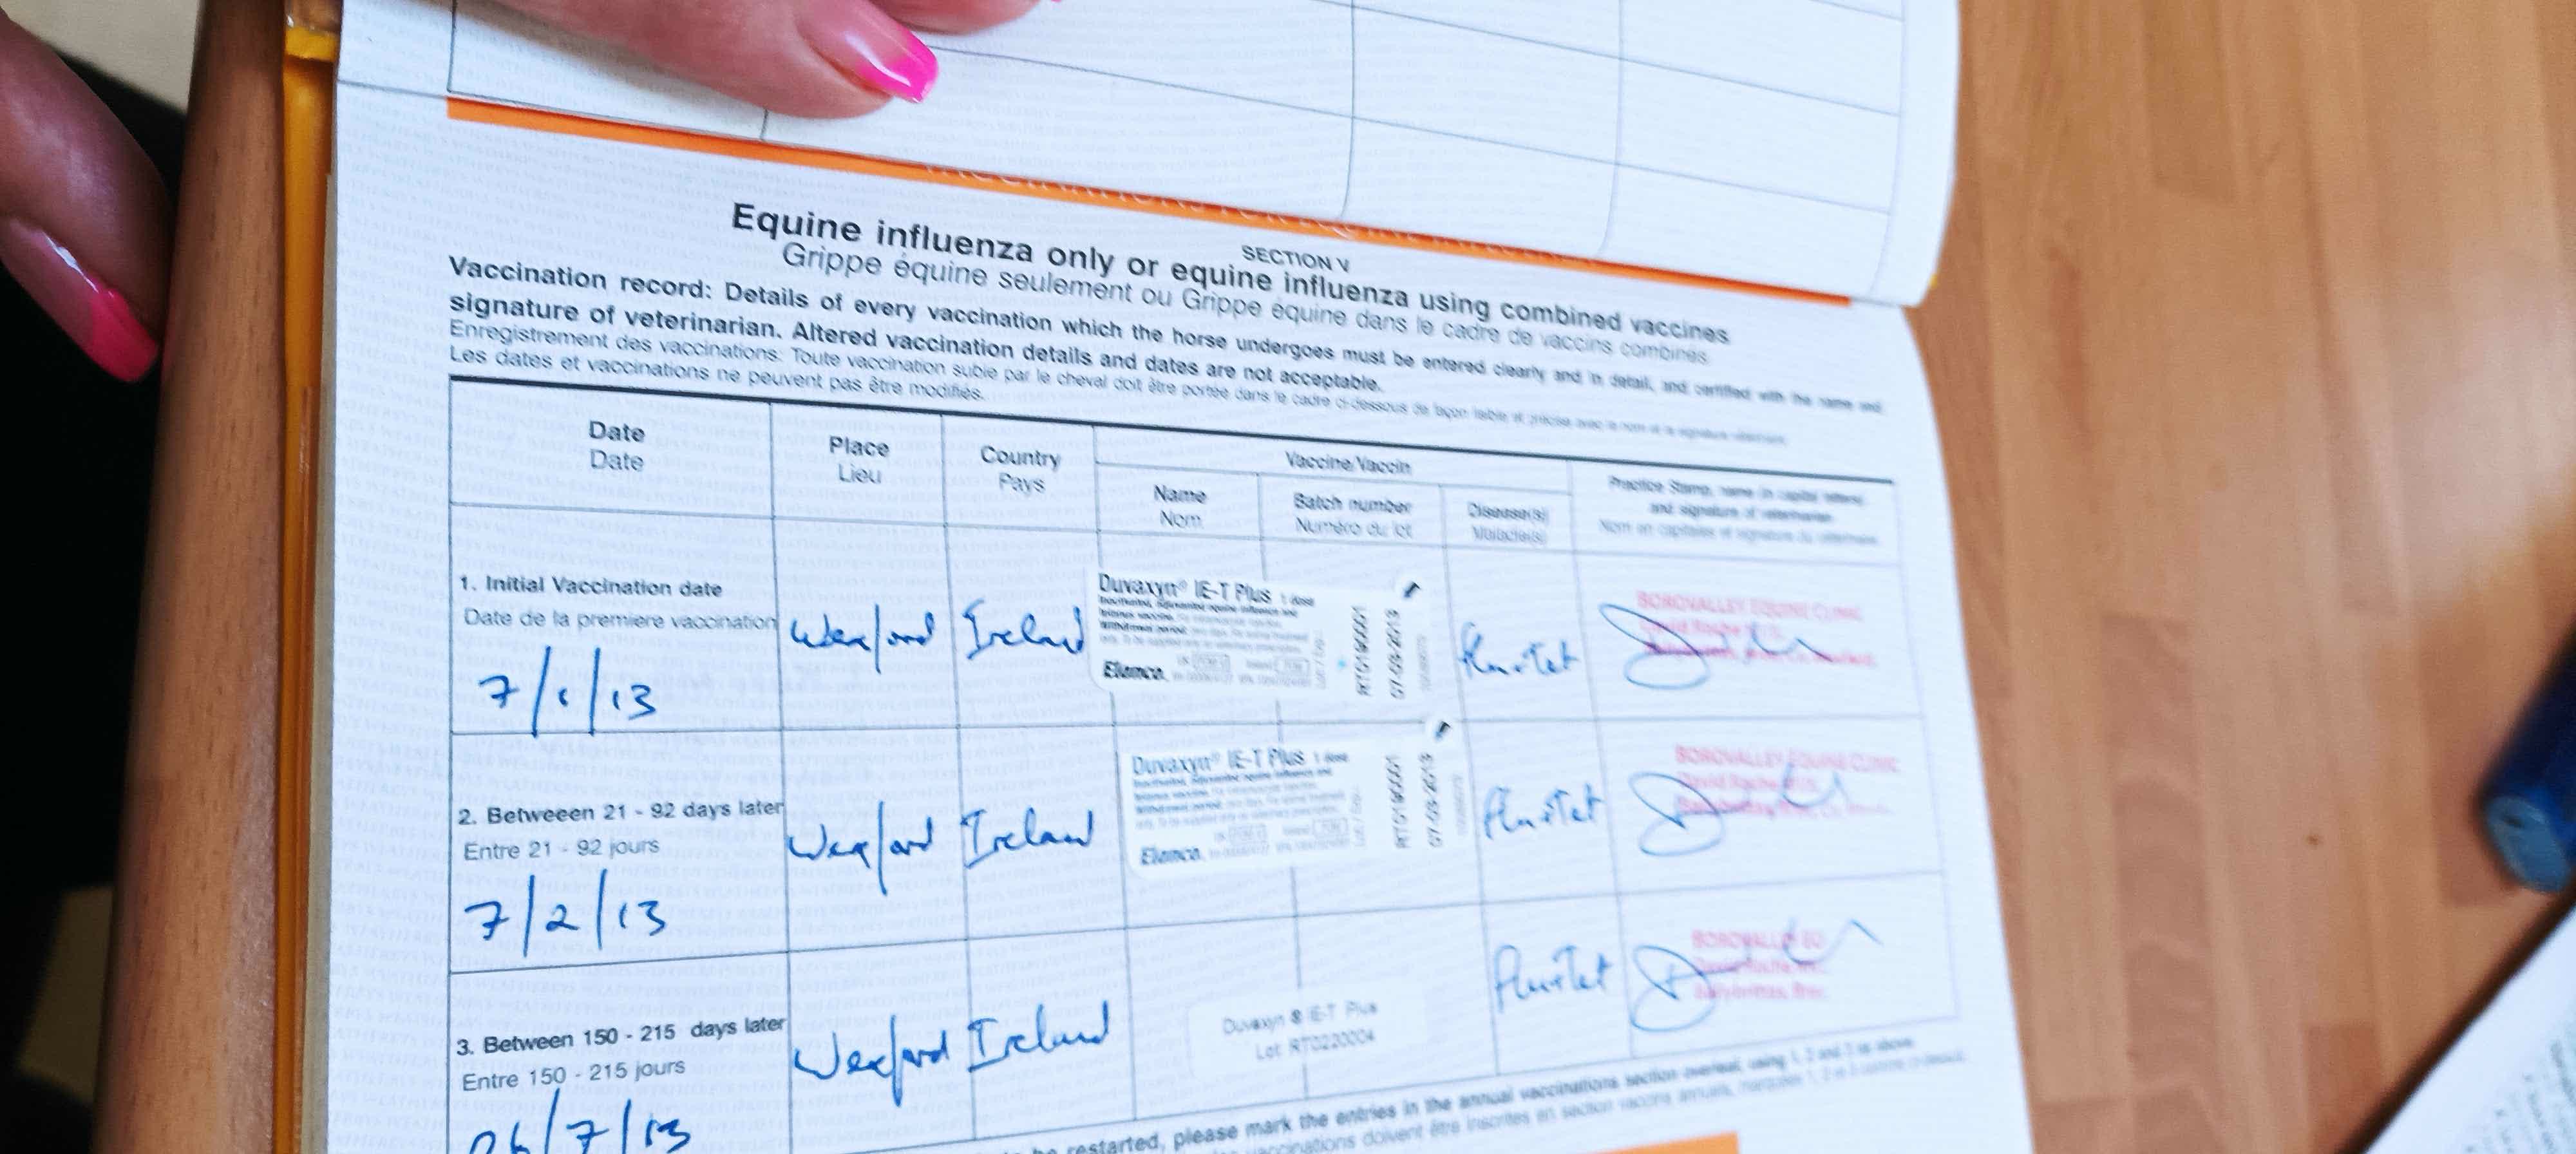 SECTION V
Equine influenza only or equine influenza using combined vaccines
Grippe équine seulement ou Grippe équine dans le cadre de vaccins combinés
Vaccination record: Details of every vaccination which the horse undergoes must be entered clearly and in detail, and certified with the name and
signature of veterinarian. Altered vaccination details and dates are not acceptable.
Enregistrement des vaccinations: Toute vaccination subie par le cheval doit être portée dans le cadre ci-dessous de façon lisible et précise avec le nom et la signature
Les dates et vaccinations ne peuvent pas être modifiés.
Date
Date
Place
Lieu
Country
Pays
Vaccine/Vaccin
Name
Nom
Batch number
Numéro du lot
Disease(s)
Maladie(s)
Practice Stamp, name (in capital letters)
and signature of veterinarian
Nom en capitales et signature du vétérinaire
1. Initial Vaccination date
Date de la premiere vaccination
7/1/13
Wexford
Ireland
Duvaxyn® IE-T Plus 1 dose
Elanco
Flu+Tet
BOROVALLEY EQUINE CLINIC
David Roche
2. Betweeen 21 - 92 days later
Entre 21 - 92 jours
7/2/13
Wexford
Ireland
Duvaxyn® IE-T Plus 1 dose
Elanco
Flu+Tet
BOROVALLEY EQUINE CLINIC
David Roche
3. Between 150 - 215 days later
Entre 150 - 215 jours
/7/13
Wexford
Ireland
Duvaxyn ® IE-T Plus
Lot RT0220004
Flu+Tet
BOROVALLEY EQ
David Roche
be restarted, please mark the entries in the annual vaccinations section overleaf, using 1, 2 and 3 as above
vaccinations doivent être inscrites en section vaccins annuels, marquées 1, 2